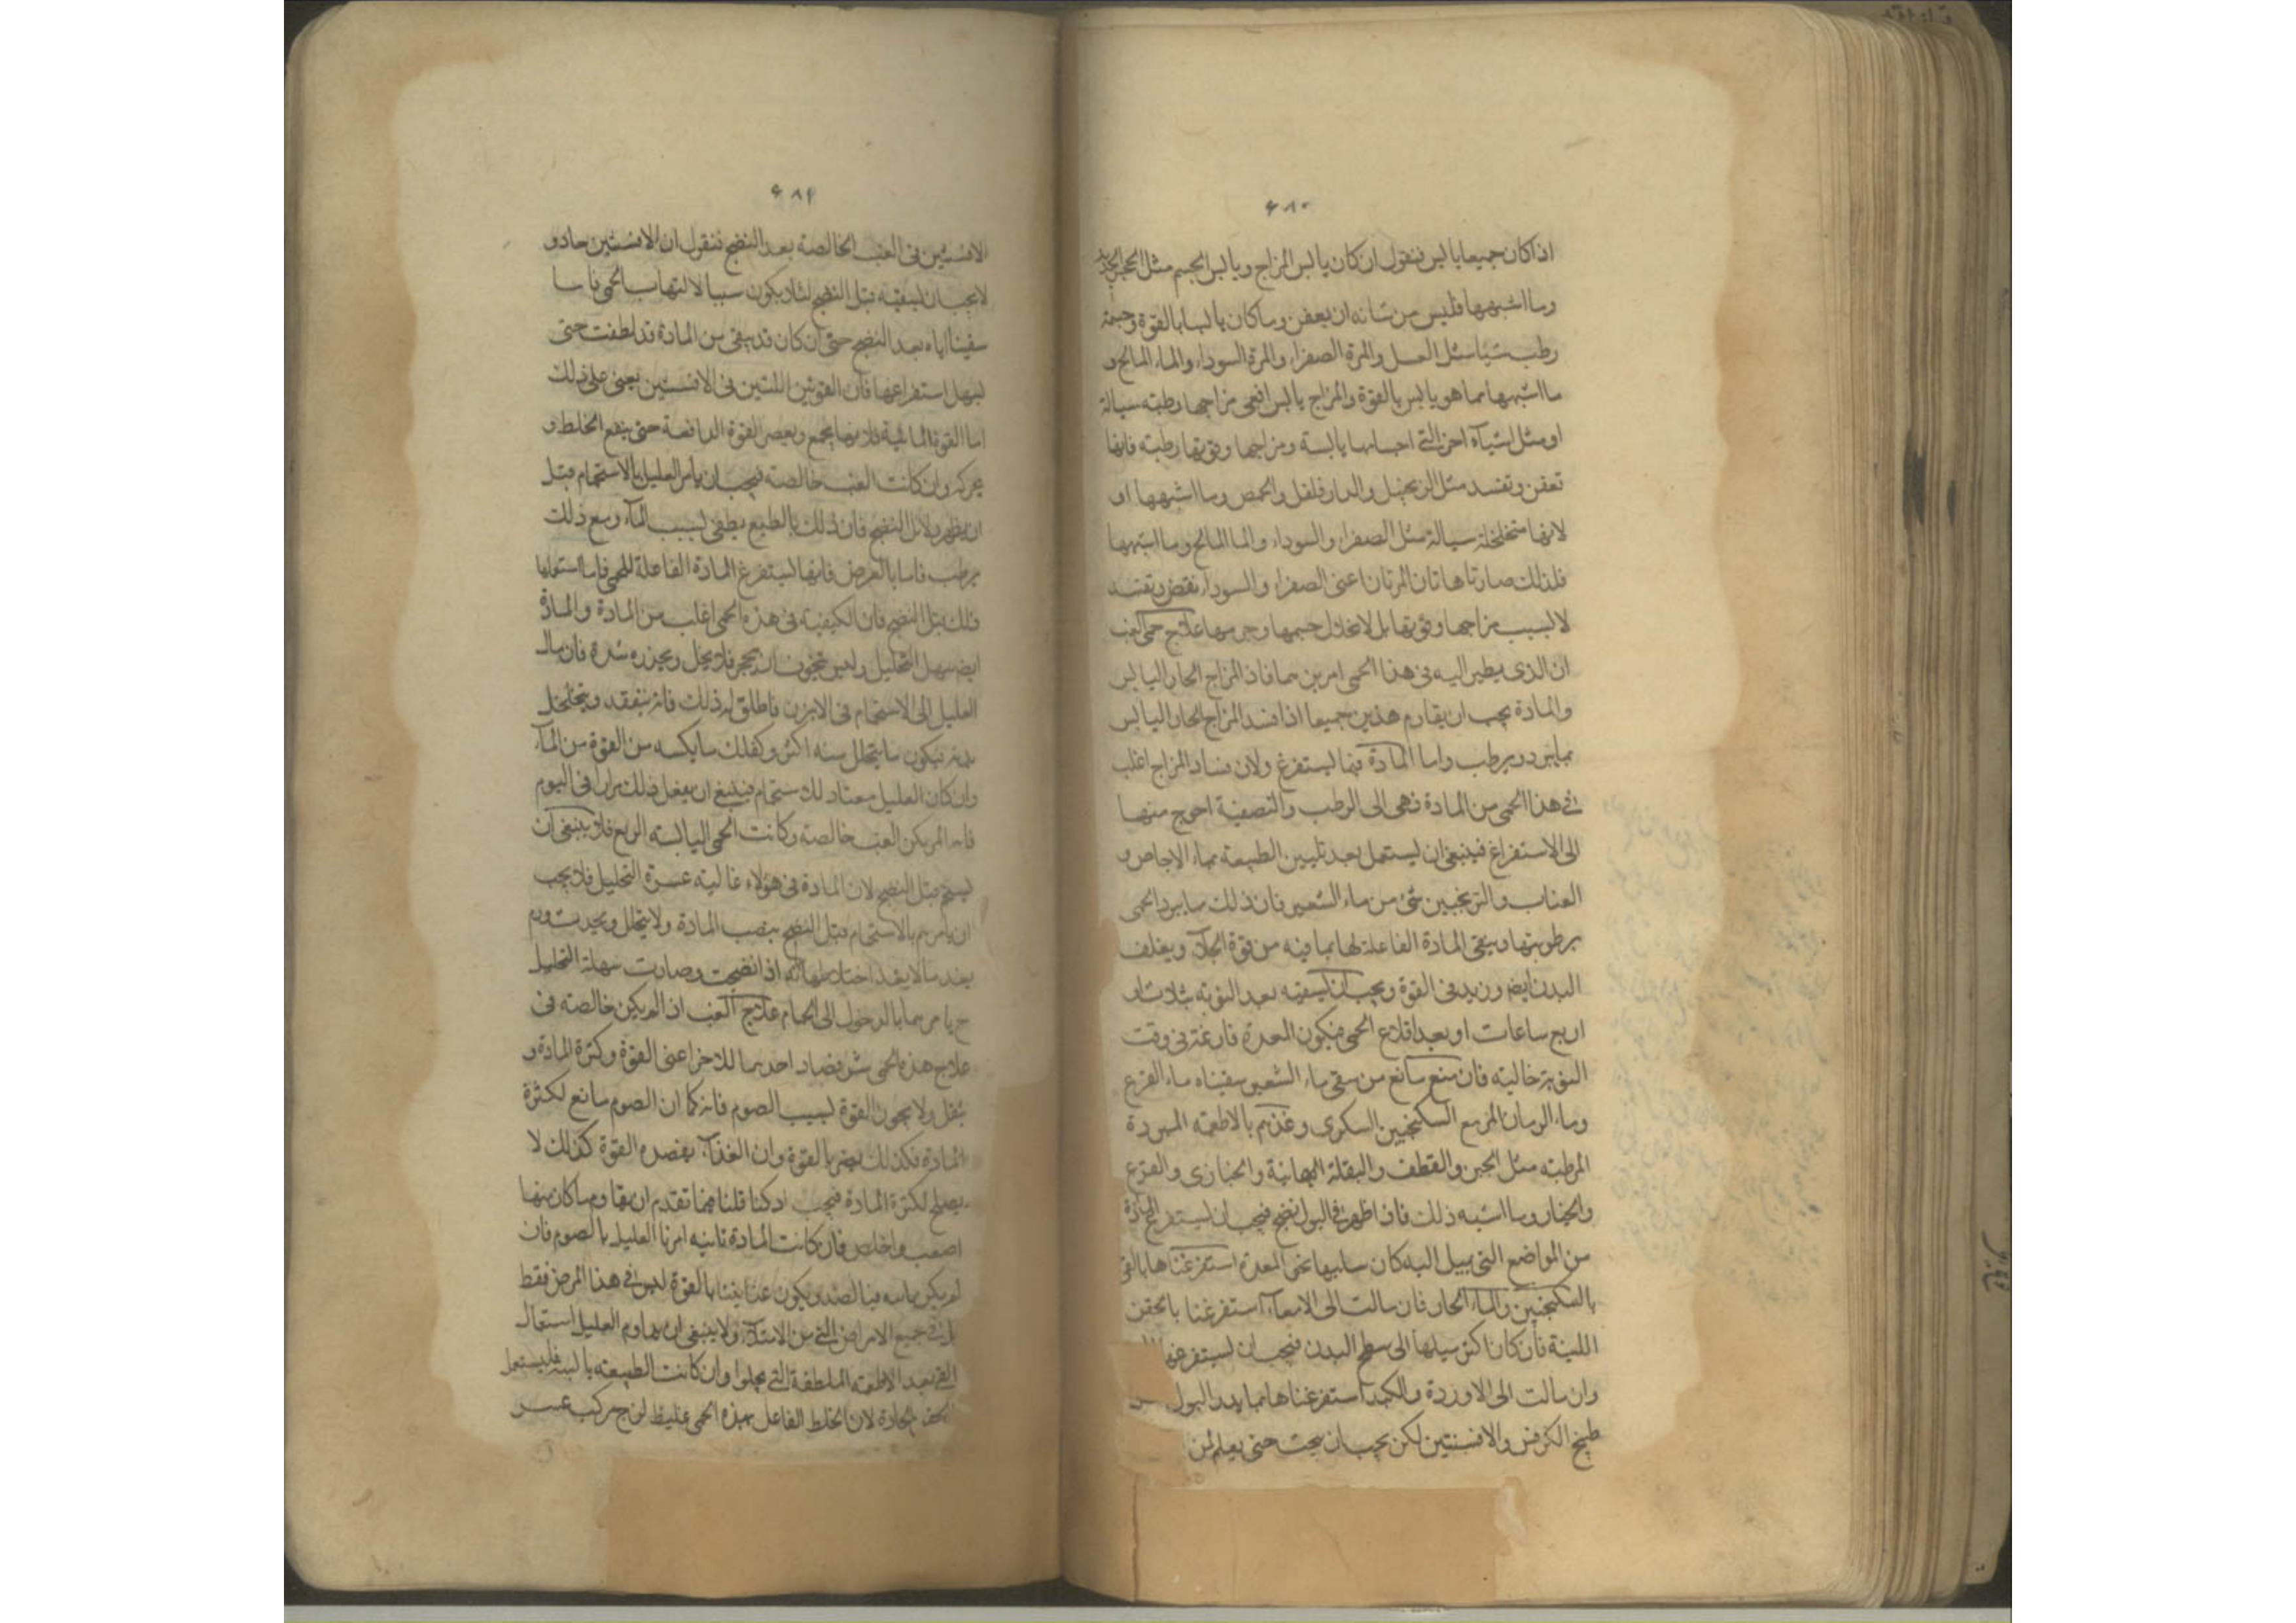 ۶۸۰
اذا كان جميعا يابس فنقول ان كان يابس المزاج ويابس الجسم مثل الحجر الحديد
وما اشبهها فليس من شانه ان يعفن وما كان يابسا بالقوة وجسمه
رطب شيا مثل العسل والمرة الصفراء والمرة السوداء والماء المالح و
ما اشبهها مما هو يابس بالقوة والمزاج يابس مزاجها رطبه سيالة
او مثل اشيآء اخر التى اجسامها يابسة ومزاجها وقوتها رطبه فانها
تعفن وتفسد مثل الزنجبيل والدار فلفل والحمص وما اشبهها او
لانها متخلخلة سيالة مثل الصفراء والسوداء والما المالح وما اشبهها
فلذلك صارتا هاتان المرتان اعنى الصفراء والسوداء وتفسد
لا لسبب مزاجها وقوتها بل لانحلال جسمها وجرمها علاج حمى الغب
ان الذى يظهر اليه فى هذا الحمى امرين هما فساد المزاج الحار اليابس
والمادة يجب ان يقاوم هذين جميعا اذا فسد المزاج الحار اليابس
بما يبرد ويرطب واما المادة فبما يستفرغ ولان فساد المزاج اغلب
فى هذا الحمى من المادة فهى الى الرطب والتصفية احوج منها
الى الاستفراغ فينبغى ان يستعمل بعد تليين الطبيعه بماء الاجاص و
العناب والترنجبين شئ من ماء الشعير فان ذلك مما يبرد الحمى
برطوبتها وينقى المادة الفاعلة لها بما فيه من قوة الجلاء ويغلف
البدن ايضا ويزيد فى القوة ويجب ان يسقيه بعد النوبه بثلاث او
اربع ساعات او بعد اقلاع الحمى فيكون المعدة فارغة فى وقت
النوبة خاليه فان منع مانع من سقى ماء الشعير سقيناه ماء القرع
وماء الرمان المز مع السكنجبين السكرى وغذيهم بالاطعمه المبردة
المرطبه مثل الجبن والقطف والبقلة اليمانية والخبازى والقرع
والخيار وما اشبه ذلك فاذا ظهر فى البول نضج فيجب ان يستفرغ المادة
من المواضع التى يميل اليه كان ميلها نحو المعدة استفرغناها بالقئ
بالسكنجبين والماء الحار فان مالت الى الامعاء استفرغنا بالحقن
اللينة فان كان اكثر ميلها الى سطح البدن فيجب ان يستفرغها
وان مالت الى الاوردة والكبد استفرغناها بما يدر البول
طبيخ الكرفس والافسنتين لكن يجب ان يبحث حتى يعلم لمن
۶۸۱
الافسنتين فى الغب الخالصه بعد النضج فنقول ان الافسنتين حار و
لا يجب ان يسقيه قبل النضج لئلا يكون سببا لالتهاب الحمى
سقينا اياه بعد النضج حتى ان كان قد بقى من المادة قد لطفت حتى
يسهل استفراغها فان القوتين اللتين فى الافسنتين يعنى على ذلك
اما القوة فلانها يجمع ويعصر القوة الدافعة حتى يدفع الخلط و
يحركه وان كانت الغب خالصه فيجب ان يامر العليل بالاستحمام قبل
ان يظهر دلائل النضج فان ذلك بالطبع يطفى لسبب الماء ومع ذلك
يرطب فاما بالعرض فانها يستفرغ المادة الفاعلة للحمى فاما استعمالها
ذلك قبل النضج فان الكيفيه فى هذه الحمى اغلب من المادة والمادة
ايضا سهل التحليل وليس يتخوف ان يتحجر فلا يحل ويحدث سدة فان مال
العليل الى الاستحمام فى الابزن فاطلق له ذلك فانه ويتخلخل
بدنه فيكون ما يتحلل منه اكثر وكذلك ما يكسبه من القوة من الماء
وان كان العليل معتادا للاستحمام فينبغى ان يفعل ذلك مرارا فى اليوم
فان لم يكن الغب خالصه وكانت الحمى اليابسه الربع فلا ينبغى ان
يستحم قبل النضج لان المادة فى هؤلاء غالبة عسرة التحليل فلا يجب
ان يامرهم بالاستحمام قبل النضج ينصب المادة ولا يتحلل ويحدث ورم
بعد ما لا يفد اذا انضجت وصارت سهلة التحليل
ح يامرهما بالدخول الى الحمام علاج الغب اذا لم يكن خالصه فى
علاج هذه الحمى شئ فضاد احدهما للاخر اعنى القوة وكثرة المادة و
ثقل ولا القوة لسبب الصوم فانه كما ان الصوم مانع لكثرة
المادة فكذلك يضر بالقوة وان الغذاء القوة كذلك لا
يصلح لكثرة المادة فيجب قلنا فيما تقدم ان يقاوم ما كان منها
اصعب فان كانت المادة امرنا العليل بالصوم فان
لم يكن بالقوة ليس فى هذا المرض فقط
بل فى جميع الامراض التى من الامتلاء ولا ينبغى ان يداوم العليل استعمال
القئ بعد الاطعمه الملطفة التى وان كانت الطبيعه يابسة فليستعمل
الحقن الحادة لان الخلط الفاعل بهذه الحمى غليظ لزج مركب عسر